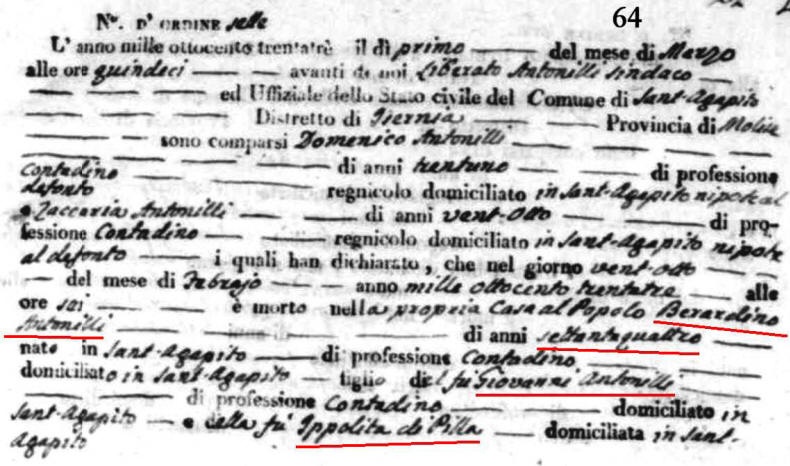 64
N.º D' ORDINE sette
L'anno mille ottocento trentatrè il dì primo del mese di Marzo
alle ore quindeci avanti di noi Liberato Antonilli sindaco
ed Uffiziale dello Stato civile del Comune di Sant-Agapito
Distretto di Isernia Provincia di Molise
sono comparsi Domenico Antonilli
di anni trentuno di professione
Contadino regnicolo domiciliato in Sant-Agapito nipote al
defonto
e Zaccaria Antonilli di anni vent-otto di pro-
fessione Contadino regnicolo domiciliato in Sant-Agapito nipote
al defonto i quali han dichiarato, che nel giorno vent-otto
del mese di Febrajo anno mille ottocento trentatre alle
ore sei è morto nella propria Casa al Popolo Berardino
Antonilli di anni settantaquattro
nato in Sant-Agapito di professione Contadino
domiciliato in Sant-Agapito figlio del fu Giovanni Antonilli
di professione Contadino domiciliato in
Sant-Agapito e della fu Ippolita di Pilla domiciliata in Sant-
Agapito